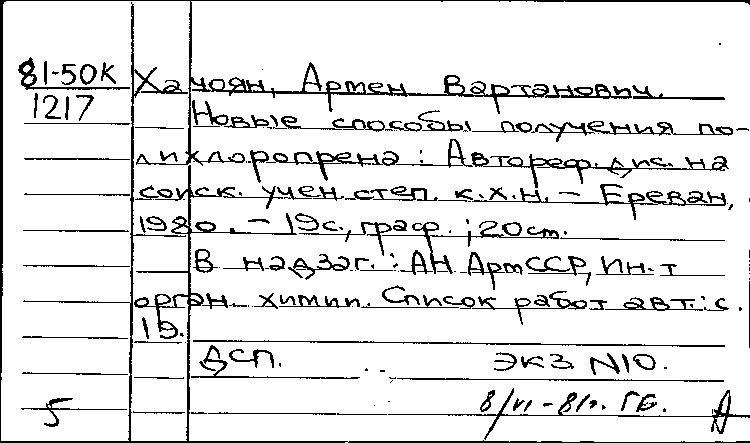 81-50К Хачоян, Армен Вартанович.
1217 Новые способы получения по-
лихлоропрена : Автореф. дис. на
соиск. учен. степ. к.х.н. – Ереван,
1980. – 19с., граф. ; 20 см.
В надзаг. : АН АрмССР, Ин-т
орган. химии. Список работ авт.: с.
19.
ДСП. экз. N10.
5 8/VI-81г. ГБ. А